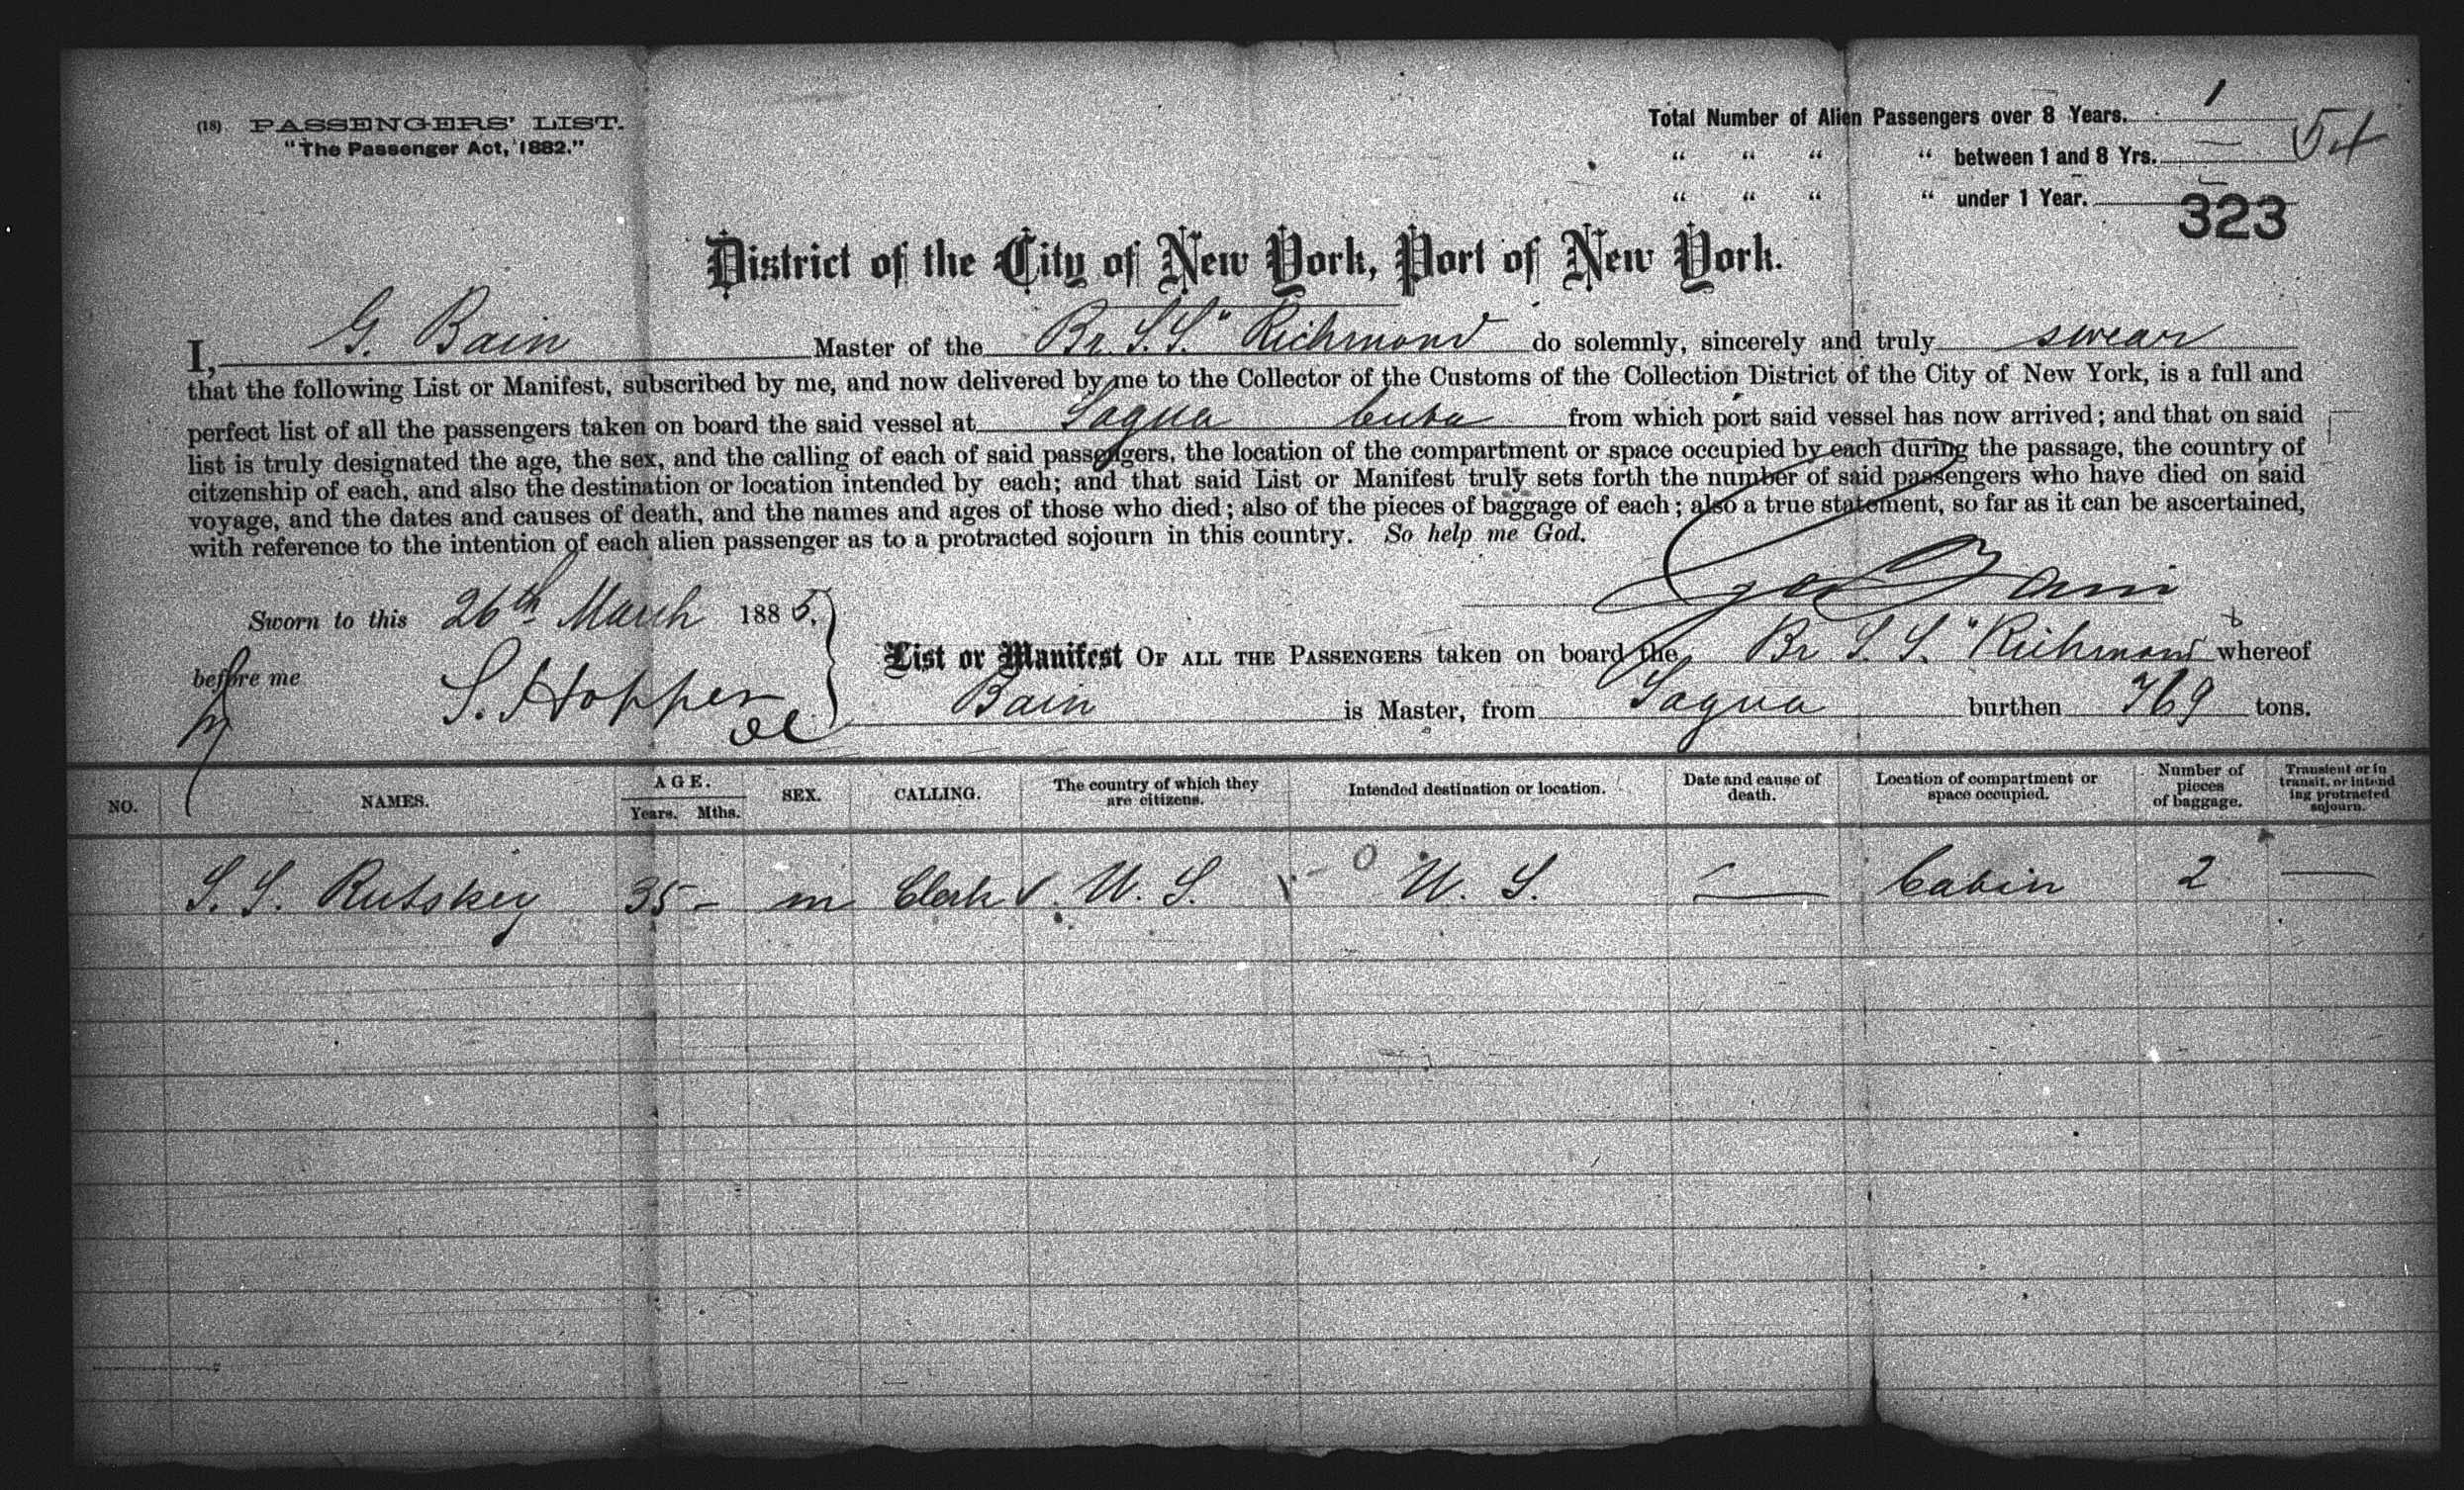 (18) PASSENGERS' LIST.
"The Passenger Act, 1882."
Total Number of Alien Passengers over 8 Years. 1
" " " " between 1 and 8 Yrs. —
" " " " under 1 Year. —
54
323
District of the City of New York, Port of New York.
I, G. Bain Master of the Br. S.S. "Richmond do solemnly, sincerely and truly swear
that the following List or Manifest, subscribed by me, and now delivered by me to the Collector of the Customs of the Collection District of the City of New York, is a full and
perfect list of all the passengers taken on board the said vessel at Sagua Cuba from which port said vessel has now arrived; and that on said
list is truly designated the age, the sex, and the calling of each of said passengers, the location of the compartment or space occupied by each during the passage, the country of
citzenship of each, and also the destination or location intended by each; and that said List or Manifest truly sets forth the number of said passengers who have died on said
voyage, and the dates and causes of death, and the names and ages of those who died; also of the pieces of baggage of each; also a true statement, so far as it can be ascertained,
with reference to the intention of each alien passenger as to a protracted sojourn in this country. So help me God.
Geo Bain
Sworn to this 26th March 1885.
before me S. Hopper
List or Manifest OF ALL THE PASSENGERS taken on board the Br S.S. "Richmond whereof
Bain is Master, from Sagua burthen 769 tons.
NO. NAMES. AGE. Years. Mths. SEX. CALLING. The country of which they are citizens. Intended destination or location. Date and cause of death. Location of compartment or space occupied. Number of pieces of baggage. Transient or in transit, or intending protracted sojourn.
S. S. Rutskey 35 – m Clerk U. S. U. S. — Cabin 2 —